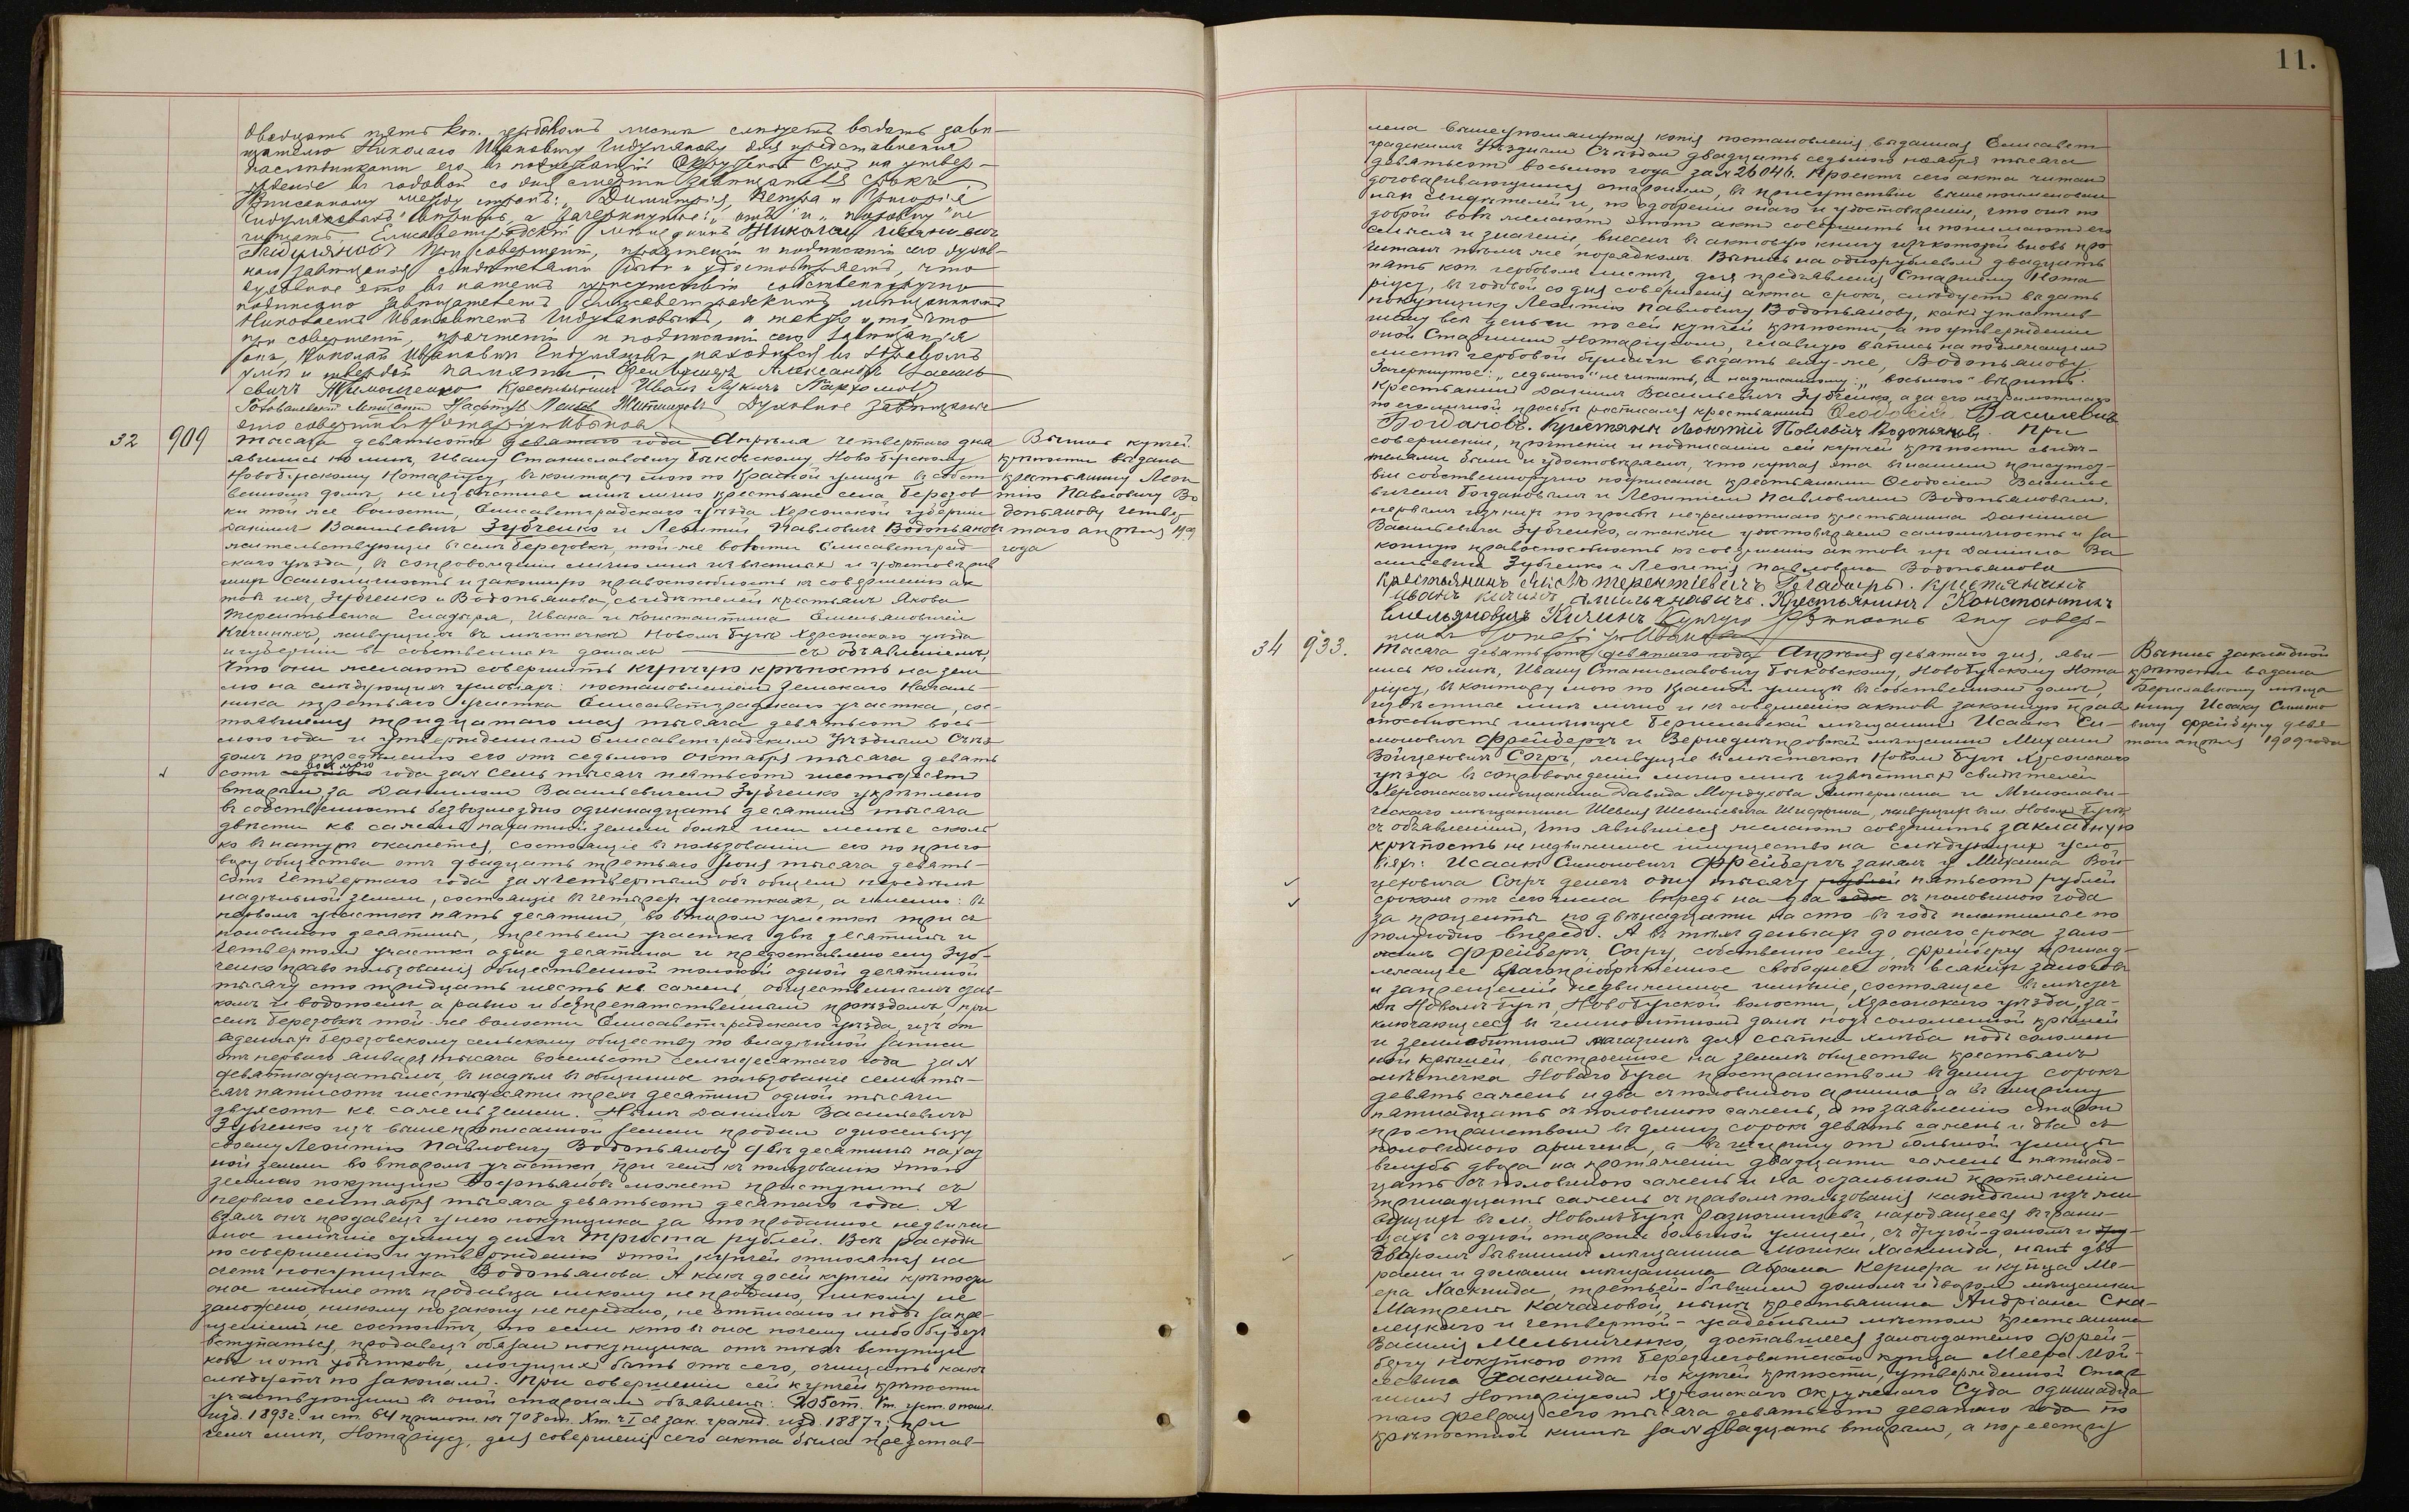 двадцать пять коп. гербовомъ листѣ слѣдуетъ выдать завѣ-
щателю Николаю Ивановичу для представленія
наслѣдниками его въ подлежащій Окружный Судъ на утвер-
жденіе въ годовой со дня смерти завѣщателя срокъ.
Вписанному между строкъ: „Димитрія, Петра и Григорія
вѣрить, а зачеркнутое: не
читать. Елисаветградскій мѣщанинъ Николай Ивановичъ
При совершеніи, прочтеніи и подписаніи сего духов-
наго завѣщанія свидѣтелями были и удостовѣряемъ, что
духовное это въ нашемъ присутствіи собственноручно
подписано завѣщателемъ Елисаветградскимъ мѣщаниномъ
Николаемъ Ивановичемъ а также и то, что
при совершеніи, прочтеніи и подписаніи сего завѣщанія
онъ, Николай Ивановичъ находился въ здравомъ
умѣ и твердой памяти. Фельдшеръ Александръ Василь-
евичъ Тимошенко Крестьянинъ Иванъ Лукичъ Пархомовъ
Духовное завѣщаніе
это совершилъ Нотаріусъ
32 909 Тысяча девятьсотъ девятаго года Апрѣля четвертаго дня
явились ко мнѣ, Ивану Станиславовичу Быковскому, Ново-Бугскому
Новобугскому Нотаріусу, въ контору мою по Красной улицѣ въ собст-
венномъ домѣ, не извѣстные мнѣ лично крестьяне села Березов-
ки той же волости, Елисаветградскаго уѣзда Херсонской губерніи
Даніилъ Васильевичъ Зубченко и Леонтій Павловичъ Водопьяновъ
жительствующіе въ селѣ Березовкѣ, той-же волости Елисаветград-
скаго уѣзда, въ сопровожденіи лично мнѣ извѣстныхъ и удостовѣрив-
шихъ самоличность и законную правоспособность къ совершенію ак-
товъ ихъ, Зубченко и Водопьянова, свидѣтелей крестьянъ Якова
Терентьевича Гладыря, Ивана и Константина Емельяновичей
Кичиныхъ, живущихъ въ мѣстечкѣ Новомъ Бугѣ Херсонскаго уѣзда
и губерніи въ собственныхъ домахъ — съ объявленіемъ,
что они желаютъ совершить купчую крѣпость на зем-
лю на слѣдующихъ условіяхъ: постановленіемъ Земскаго Началь-
ника третьяго участка Елисаветградскаго участка, сос-
тоявшемся тридцатаго мая тысяча девятьсотъ вось-
мого года и утвержденнымъ Елисаветградскимъ Уѣзднымъ Съѣз-
домъ по опредѣленію его отъ седьмого октября тысяча девять-
восьмого
сотъ седьмого года за № семь тысячъ пятьсотъ шестьдесятъ
вторымъ, за Даніиломъ Васильевичемъ Зубченко укрѣплено
въ собственность безвозмездно одиннадцать десятинъ тысяча
двѣсти кв. сажень пахатной земли болѣе или менѣе сколь-
ко въ натурѣ окажется, состоящіе въ пользованіи его по приго-
вору общества отъ двадцать третьяго Іюня тысяча девять-
сотъ четвертаго года за № четвертымъ объ общемъ передѣлѣ
надѣльной земли, состоящіе въ четырехъ участкахъ, а именно: въ
первомъ участкѣ пять десятинъ, во второмъ участкѣ три съ
половиною десятины, третьемъ участкѣ двѣ десятины и
четвертомъ участкѣ одна десятина и предоставлено ему Зуб-
ченко право пользованія общественной толокой одной десятиной
тысячу сто тридцать шесть кв. сажень, общественнымъ став-
комъ и водопоемъ, а равно и безпрепятственнымъ проѣздомъ, при
селѣ Березовкѣ той-же волости Елисаветградскаго уѣзда, изъ от-
веденныхъ Березовскому сельскому обществу по владѣнной записи
отъ перваго Января тысяча восемьсотъ семидесятаго года за №
девятнадцатымъ, въ надѣлъ въ общинное пользованіе семи ты-
сячъ пятисотъ шестидесяти трехъ десятинъ одной тысячи
двухсотъ кв. сажень земли. Нынѣ Даніилъ Васильевичъ
Зубченко изъ вышепрописанной земли продалъ односельцу
своему Леонтію Павловичу Водопьянову двѣ десятины пахат-
ной земли во второмъ участкѣ, при чемъ къ пользованію этою
землею покупщикъ Водопьяновъ можетъ приступить съ
перваго сентября тысяча девятьсотъ десятаго года. А
взялъ онъ продавецъ у него покупщика за то проданное недвижи-
мое имѣніе сумму денегъ триста рублей. Всѣ расходы
по совершенію и утвержденію этой купчей относятся на
счетъ покупщика Водопьянова. А какъ до сей купчей крѣпости
оное имѣніе отъ продавца никому не продано, никому не
заложено, никому по закону не передано, не отписано и подъ запре-
щеніемъ не состоитъ, то если кто въ оное почему либо будетъ
вступаться, продавецъ обязанъ покупщика отъ тѣхъ вступщи-
ковъ и отъ убытковъ, могущихъ быть отъ сего, очищать какъ
слѣдуетъ по законамъ. При совершеніи сей купчей крѣпости
участвующимъ въ оной сторонамъ объявлены: 205 ст. Vт. уст. о пошл.
изд. 1893 г. и ст. 64 примѣч. къ 708 ст. Xт. ч I св. зак. гражд. изд. 1887 г., при
чемъ мнѣ, Нотаріусу, для совершенія сего акта была представ-
Выпись купчей
крѣпости выдана
крестьянину Леон-
тію Павловичу Во-
допьянову четвер-
таго апрѣля 1909
года
11.
лена вышеупомянутая копія постановленія выданная Елисавет-
градскимъ Уѣзднымъ Съѣздомъ двадцать седьмого ноября тысяча
девятьсотъ восьмого года за № 26046. Проектъ сего акта читанъ
договаривающимся сторонамъ, въ присутствіи вышепоименован-
ныхъ свидѣтелей и, по одобреніи онаго и удостовѣреніи, что они по
доброй волѣ желаютъ этотъ актъ совершить и понимаютъ его
смыслъ и значеніе, внесенъ въ актовую книгу изъ которой вновь про-
читанъ тѣмъ же порядкомъ. Выпись на однорублевомъ двадцать
пять коп. гербовомъ листѣ, для предъявленія Старшему Нота-
ріусу, въ годовой со дня совершенія акта срокъ, слѣдуетъ выдать
покупщику Леонтію Павловичу Водопьянову, какъ уплатив-
шему всѣ деньги по сей купчей крѣпости, а по утвержденіи
оной Старшимъ Нотаріусомъ, главную выпись на подлежащемъ
листѣ гербовой бумаги выдать ему-же, Водопьянову.
Зачеркнутое: „седьмого“ не читать, а надписанному: „восьмого“ вѣрить.
Крестьянинъ Даніилъ Васильевичъ Зубченко, а за его неграмотностью
по его личной просьбѣ росписался крестьянинъ Ѳеодосій Васильевичъ
Богдановъ. Крестянинъ Леонтій Повловичъ Водопьяновъ. При
совершеніи, прочтеніи и подписаніи сей купчей крѣпости свидѣ-
телями были и удостовѣряемъ, что купчая эта въ нашемъ присутст-
віи собственноручно подписана крестьянами Ѳеодосіемъ Василье-
вичемъ Богдановымъ и Леонтіемъ Павловичемъ Водопьяновымъ,
первымъ изъ нихъ по просьбѣ неграмотнаго крестьянина Даніила
Васильевича Зубченко, а также удостовѣряемъ самоличность и за-
конную правоспособность къ совершенію актовъ ихъ Даніила Ва-
сильевича Зубченко и Леонтія Павловича Водопьянова
Крестьянинъ Терентіевичъ Гладырь. Крестянинъ
Иванъ Кичинъ Емильяновичъ. Крестьянинъ Константинъ
Емельяновичъ Кичинъ Купчую крѣпость эту совер-
шилъ Нотаріусъ
34 933. Тысяча девятьсотъ девятаго года Апрѣля девятаго дня, яви-
лись ко мнѣ, Ивану Станиславовичу Быковскому, Новобугскому Нота-
ріусу, въ контору мою по Красной улицѣ въ собственномъ домѣ,
извѣстные мнѣ лично и къ совершенію актовъ законную право-
способность имѣющіе Бериславскій мѣщанинъ Исаакъ Си-
моновичъ Фрейбергъ и Верхнеднѣпровскій мѣщанинъ Михаилъ
Войцеховичъ Согръ, живущіе въ мѣстечкѣ Новомъ Бугѣ Херсонскаго
уѣзда въ сопровожденіи лично мнѣ извѣстныхъ свидѣтелей
Херсонскаго мѣщанина Давида Мордухова и
мѣщанина Шевеля Шевелевича живущихъ въ м. Новомъ Бугѣ,
съ объявленіемъ, что явившіеся желаютъ совершить закладную
крѣпость на недвижимое имущество на слѣдующихъ усло-
віяхъ: Исаакъ Симоновичъ Фрейбергъ занялъ у Михаила Вой-
цеховича Согръ денегъ одну тысячу рублей пятьсотъ рублей
срокомъ отъ сего числа впредь на два года съ половиною года
за проценты по двѣнадцати на сто въ годъ платимые по
полугодно впередъ. А въ тѣхъ деньгахъ до онаго срока зало-
жилъ Фрейбергъ, Согру, собственно ему, Фрейбергу принад-
лежащее благопріобрѣтенное свободное отъ всякихъ залоговъ
и запрещеній недвижимое имѣніе, состоящее въ мѣстеч-
кѣ Новомъ-Бугѣ, Новобугской волости, Херсонскаго уѣзда, за-
ключающееся въ глинобитномъ домѣ подъ соломенной крышей
и землебитномъ магазинѣ для ссыпки хлѣба подъ соломен-
ной крышей, выстроенное на землѣ общества крестьянъ
мѣстечка Новаго Буга пространствомъ въ длину сорокъ
девять сажень и два съ половиною аршина, а въ ширину
пятнадцать съ половиною сажень, а по заявленію сторонъ
пространствомъ въ длину сорокъ девять сажень и два съ
половиною аршина, а въ ширину отъ большой улицы
вглубь двора на протяженіи двадцати сажень пятнад-
цать съ половиною сажень и на остальномъ протяженіи
тринадцать сажень съ правомъ пользованія каждымъ изъ жи-
вущихъ въ м. Новомъ-Бугѣ разночинцевъ, находящееся въ грани-
цахъ: съ одной стороны большой улицей, съ другой-домомъ и
дворомъ бывшимъ мѣщанина Мошки Хаскинда, нынѣ дво-
рами и домами мѣщанина Абрама Кернера и купца Ме-
ера Хаскинда, третьей-бывшимъ домомъ и дворомъ мѣщанки
Матрены Качановой, нынѣ крестьянина Андріана Ска-
лецкаго и четвертой-усадебнымъ мѣстомъ крестьянина
Василія Мельниченко, доставшееся залогодателю Фрей-
бергу покупкою отъ Березнеговатскаго купца Меера Мой-
сеевича Хаскинда по купчей крѣпости, утвержденной Стар-
шимъ Нотаріусомъ Херсонскаго Окружнаго Суда одиннадца-
таго Февраля сего тысяча девятьсотъ девятаго года по
крѣпостной книгѣ за № двадцать вторымъ, а по реестру
Выпись закладной
крѣпости выдана
Бериславскому мѣща-
нину Исааку Симоно-
вичу Фрейбергу девя-
таго апрѣля 1909 года